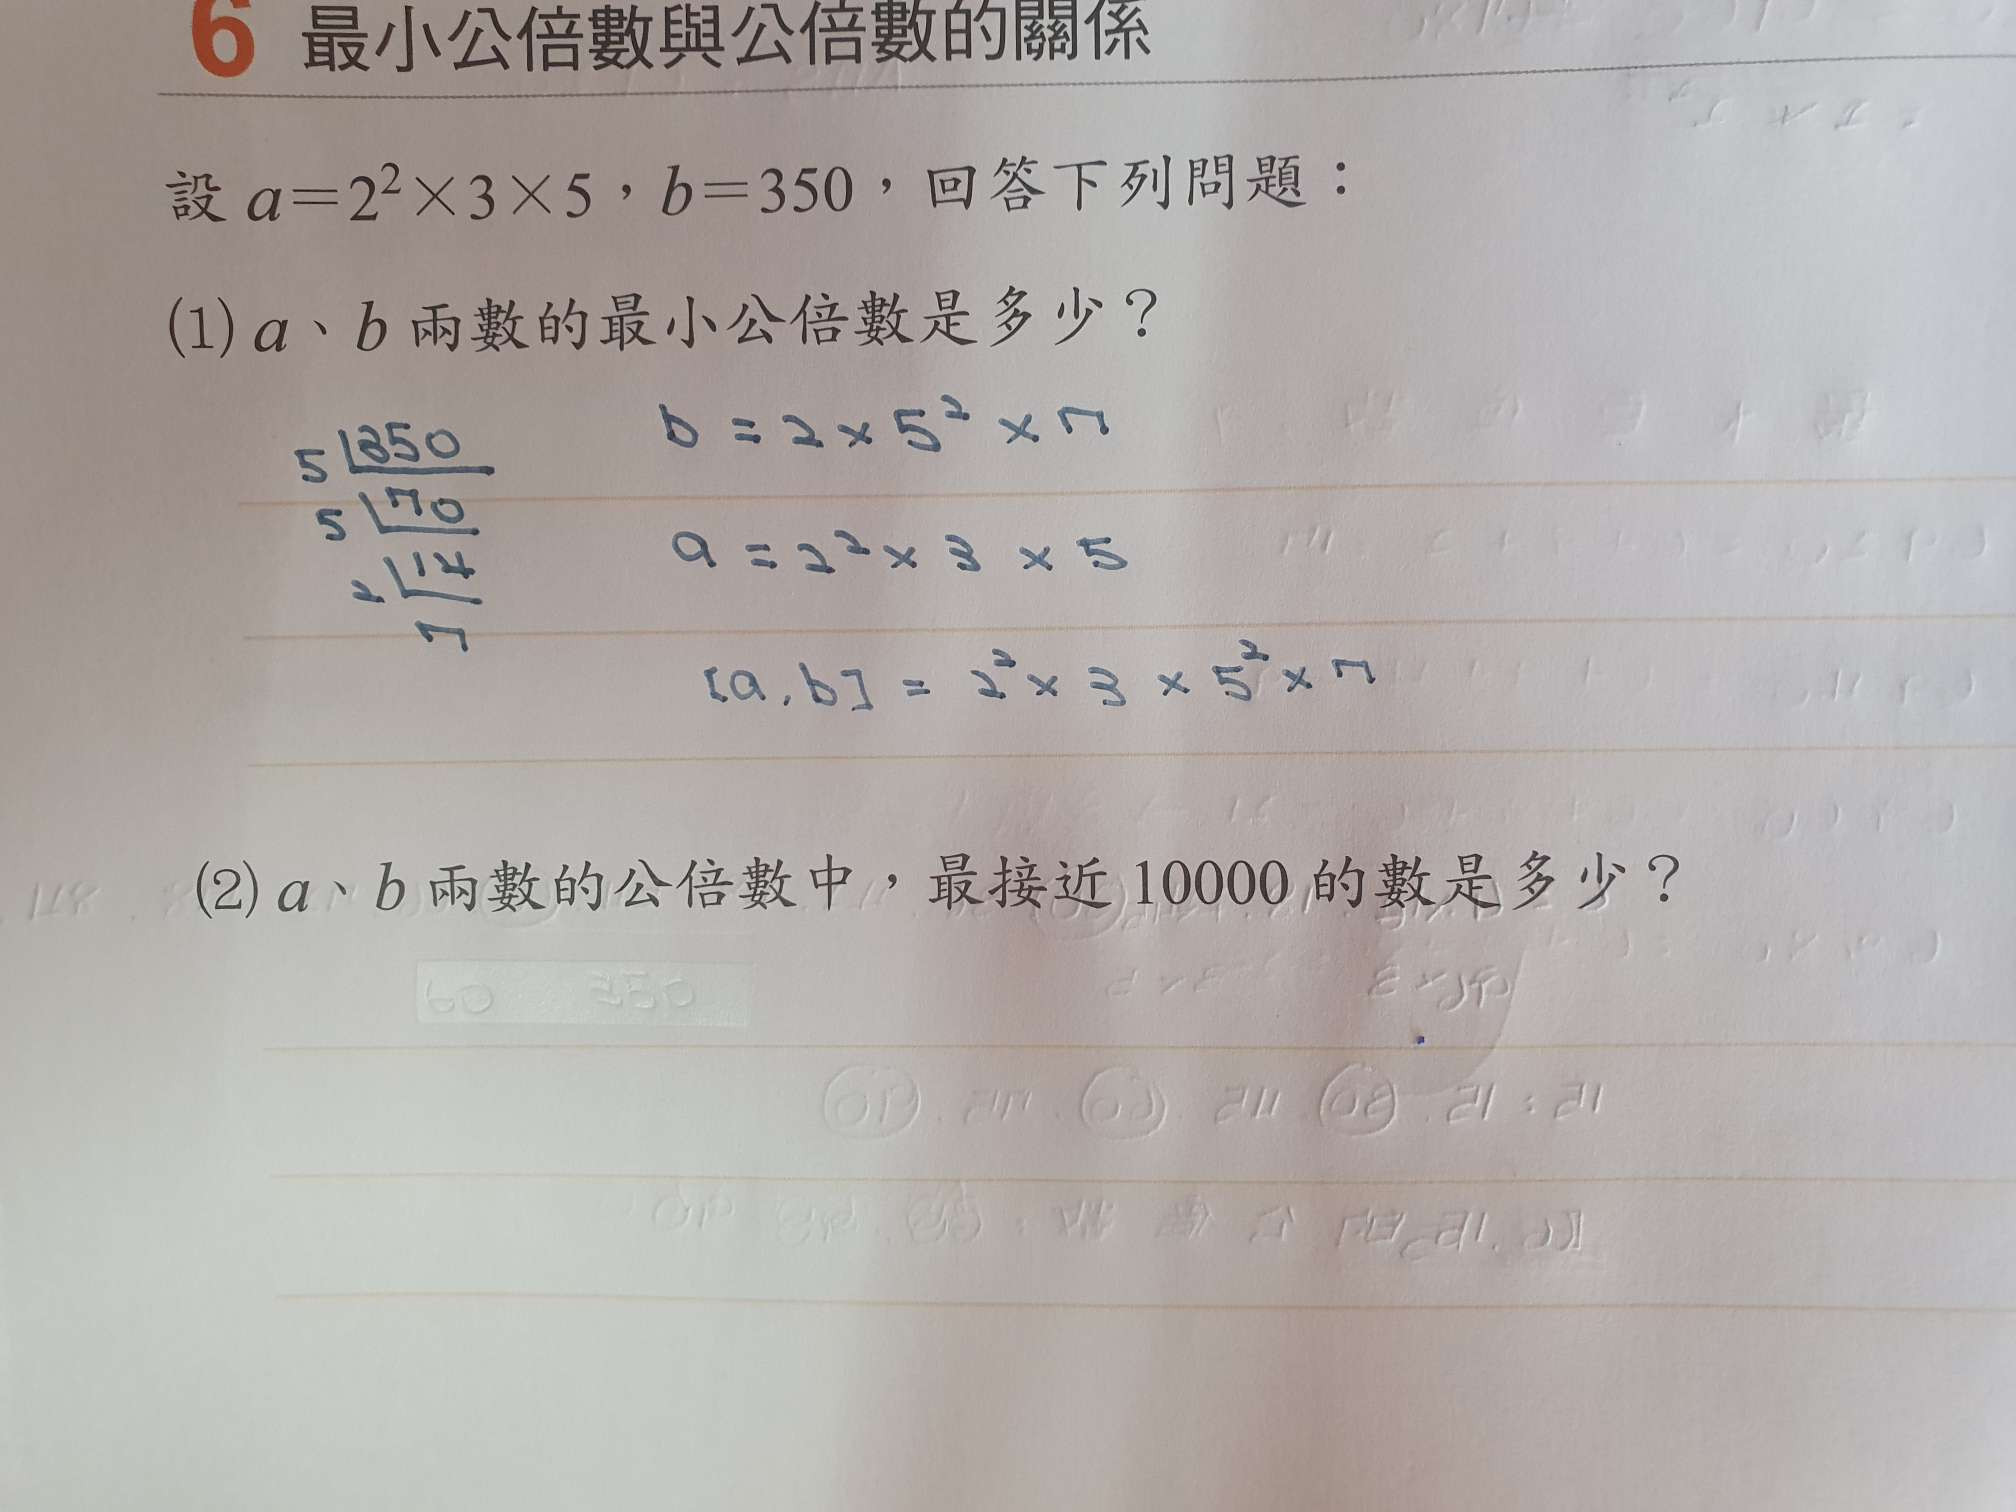 6 最小公倍數與公倍數的關係
設 a=2²×3×5，b=350，回答下列問題：
(1) a、b 兩數的最小公倍數是多少？
5 350
5 70
2 14
7
b = 2 × 5² × 7
a = 2² × 3 × 5
[a, b] = 2² × 3 × 5² × 7
(2) a、b 兩數的公倍數中，最接近 10000 的數是多少？